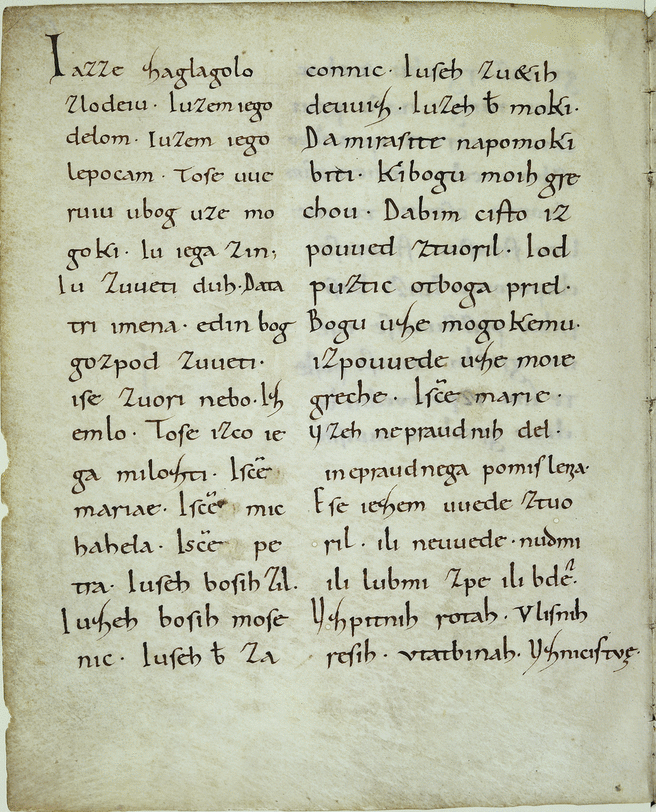 Iazze zaglagolo
zlodeiu. Iuzem iego
delom. Iuzem iego
lepocam. Tose uue
ruiu ubog uze mo
goki. Iu iega zin;
Iu zuueti duh. Data
tri imena. edin bog
gozpod zuueti.
ise zuori nebo. Iz
emlo. Tose izco ie
ga milozti. Isce
mariae. Isce mic
hahela. Isce pe
tra. Iuseh bosih zil.
Iuzeh bosih mose
nic. Iuseh b za
connic. Iuseh zu&ih
deuuiz. Iuzeh b moki.
Da mirasite napomoki
biti. Kibogu moih gre
chou. Dabim cisto iz
pouued ztuoril. Iod
puztic otboga priel.
Bogu uze mogokemu.
izpouuede uze moie
greche. Isce marie.
uzeh nepraudnih del.
inepraudnega pomislenza.
Ese iezem uuede ztuo
ril. ili neuuede. nudmi
ili lubmi zpe ili bde.
Uzpitnih rotah. Vlisnih
resih. vtatbinah. Uznicistvę.